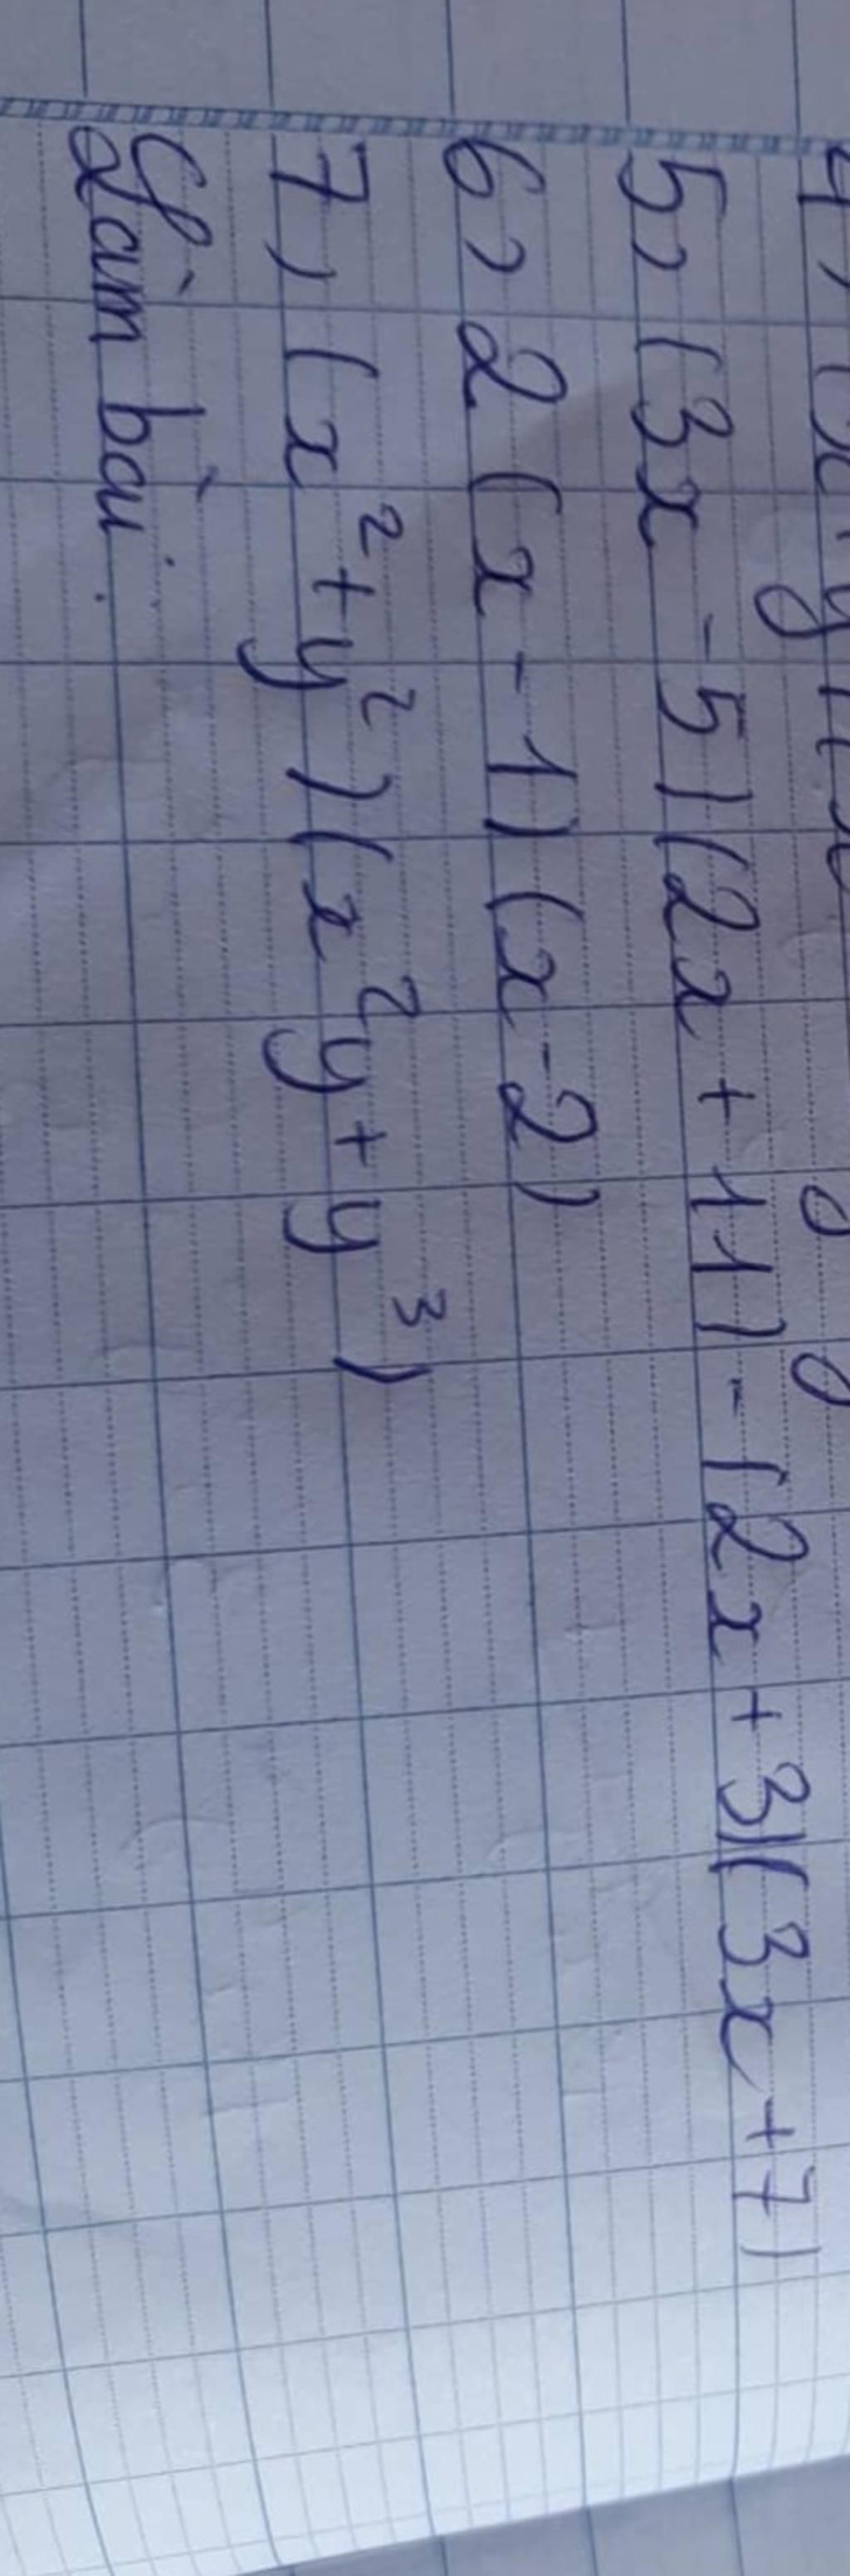 5) (3x - 5)(2x + 11) - (2x + 3)(3x + 7)
6) 2(x - 1)(x - 2)
7) (x² + y²)(x²y + y³)
Làm bài: